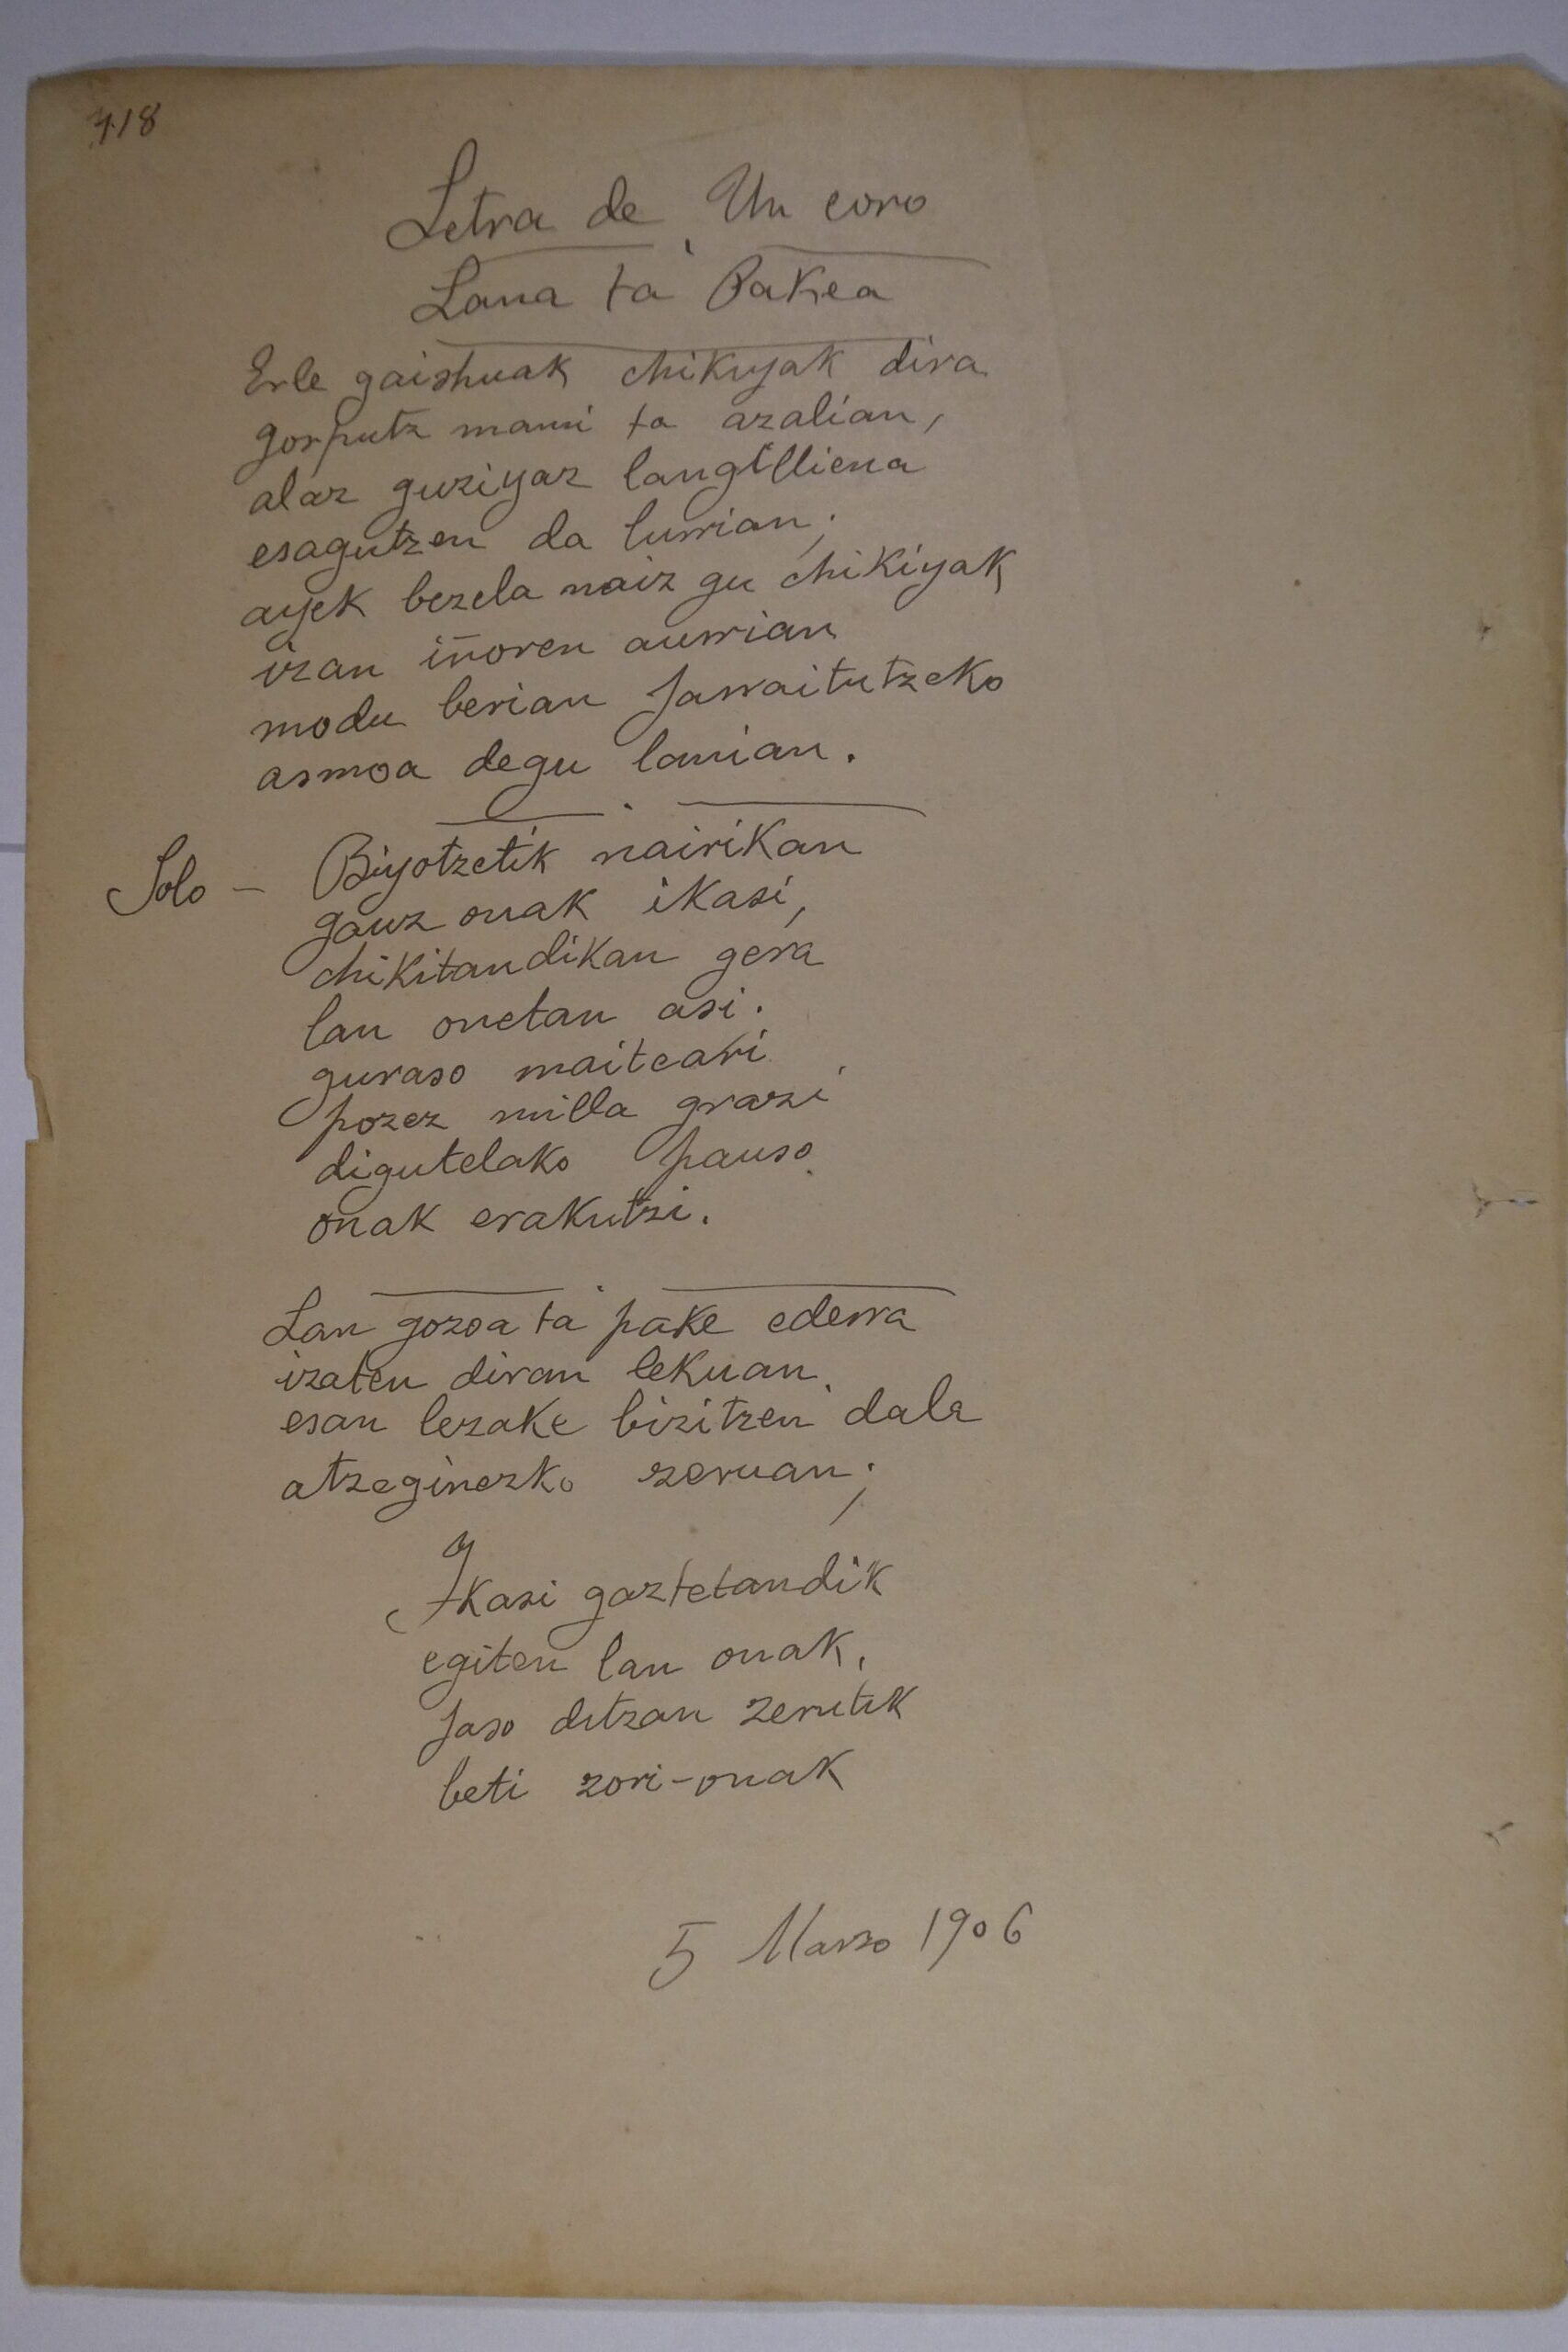 718
Letra de Un coro
Lana ta Pakea
Erle gaishuak chikiyak dira
gorputz mami ta azalian,
alaz guziyaz langilliena
esagutzen da lurrian;
ayek bezela naiz gu chikiyak
izan iñoren aurrian
modu berian Jarraitutzeko
asmoa degu lanian.
Solo - Biyotzetik nairikan
gauz onak ikasi,
chikitandikan gera
lan onetan asi.
guraso maiteari
pozez milla grazi
digutelako pauso
onak erakutzi.
Lan gozoa ta pake ederra
izaten diran lekuan
esan lezake bizitzen dala
atzeginezko zeruan;
Ikasi gaztetandik
egiten lan onak,
Jaso ditzan zerutik
beti zori-onak
5 Marzo 1906